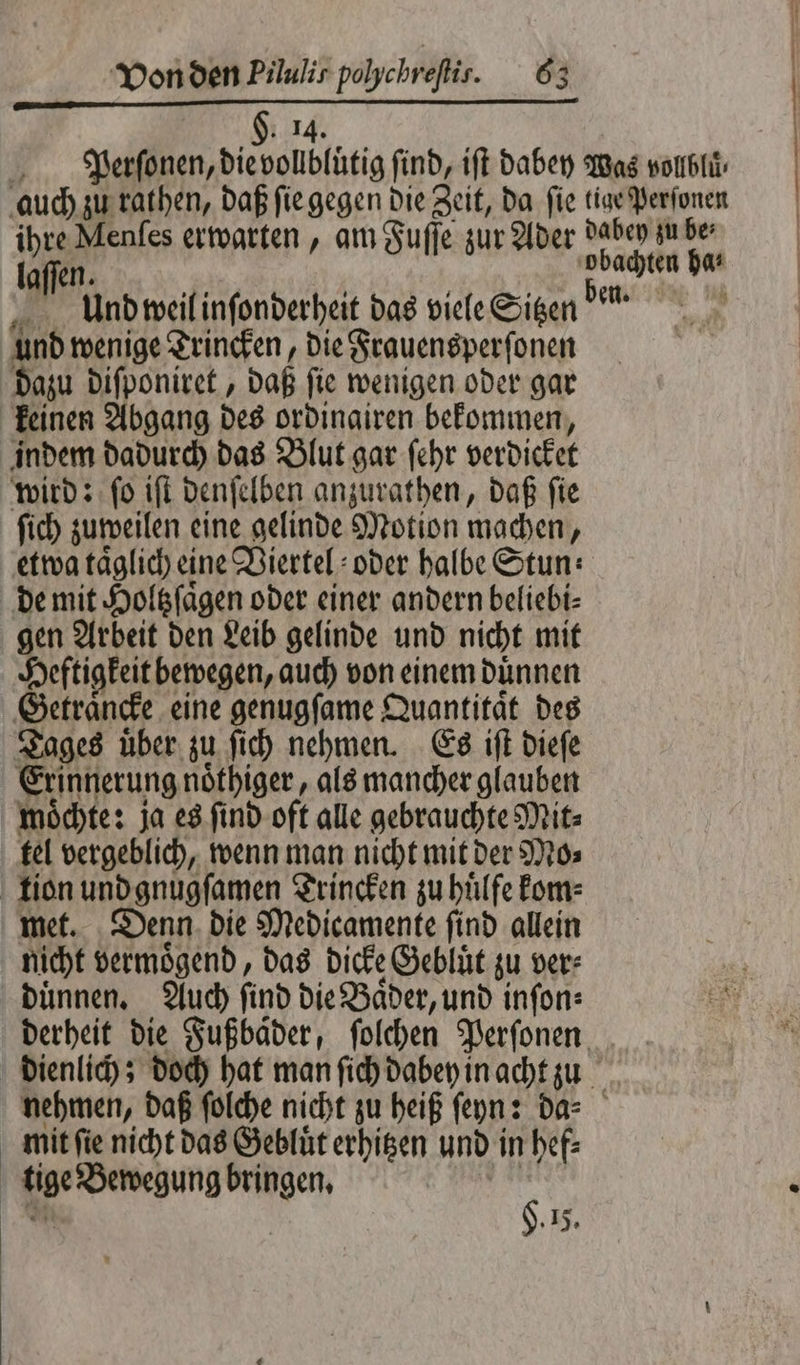 Von den Pilulis polychreſtis. 63
§. 14.
Perſonen, die vollbluͤtig ſind, iſt dabey
auch zu rathen, daß ſie gegen die Zeit, da ſie
ihre Menſes erwarten, am Fuſſe zur Ader
laſſen.
Was vollbluͤ-
tige Perſonen
dabey zu be-
obachten ha-
ben.
Und weil inſonderheit das viele Sitzen
und wenige Trincken, die Frauensperſonen
dazu diſponiret, daß ſie wenigen oder gar
keinen Abgang des ordinairen bekommen,
indem dadurch das Blut gar ſehr verdicket
wird: ſo iſt denſelben anzurathen, daß ſie
ſich zuweilen eine gelinde Motion machen,
etwa taͤglich eine Viertel- oder halbe Stun-
de mit Holtzſaͤgen oder einer andern beliebi-
gen Arbeit den Leib gelinde und nicht mit
Heftigkeit bewegen, auch von einem duͤnnen
Getraͤncke eine genugſame Quantitaͤt des
Tages uͤber zu ſich nehmen. Es iſt dieſe
Erinnerung noͤthiger, als mancher glauben
moͤchte: ja es ſind oft alle gebrauchte Mit-
tel vergeblich, wenn man nicht mit der Mo-
tion und gnugſamen Trincken zu huͤlfe kom-
met. Denn die Medicamente ſind allein
nicht vermoͤgend, das dicke Gebluͤt zu ver-
duͤnnen. Auch ſind die Baͤder, und inſon-
derheit die Fußbaͤder, ſolchen Perſonen
dienlich; doch hat man ſich dabey in acht zu
nehmen, daß ſolche nicht zu heiß ſeyn: da-
mit ſie nicht das Gebluͤt erhitzen und in hef-
tige Bewegung bringen.
§. 15.